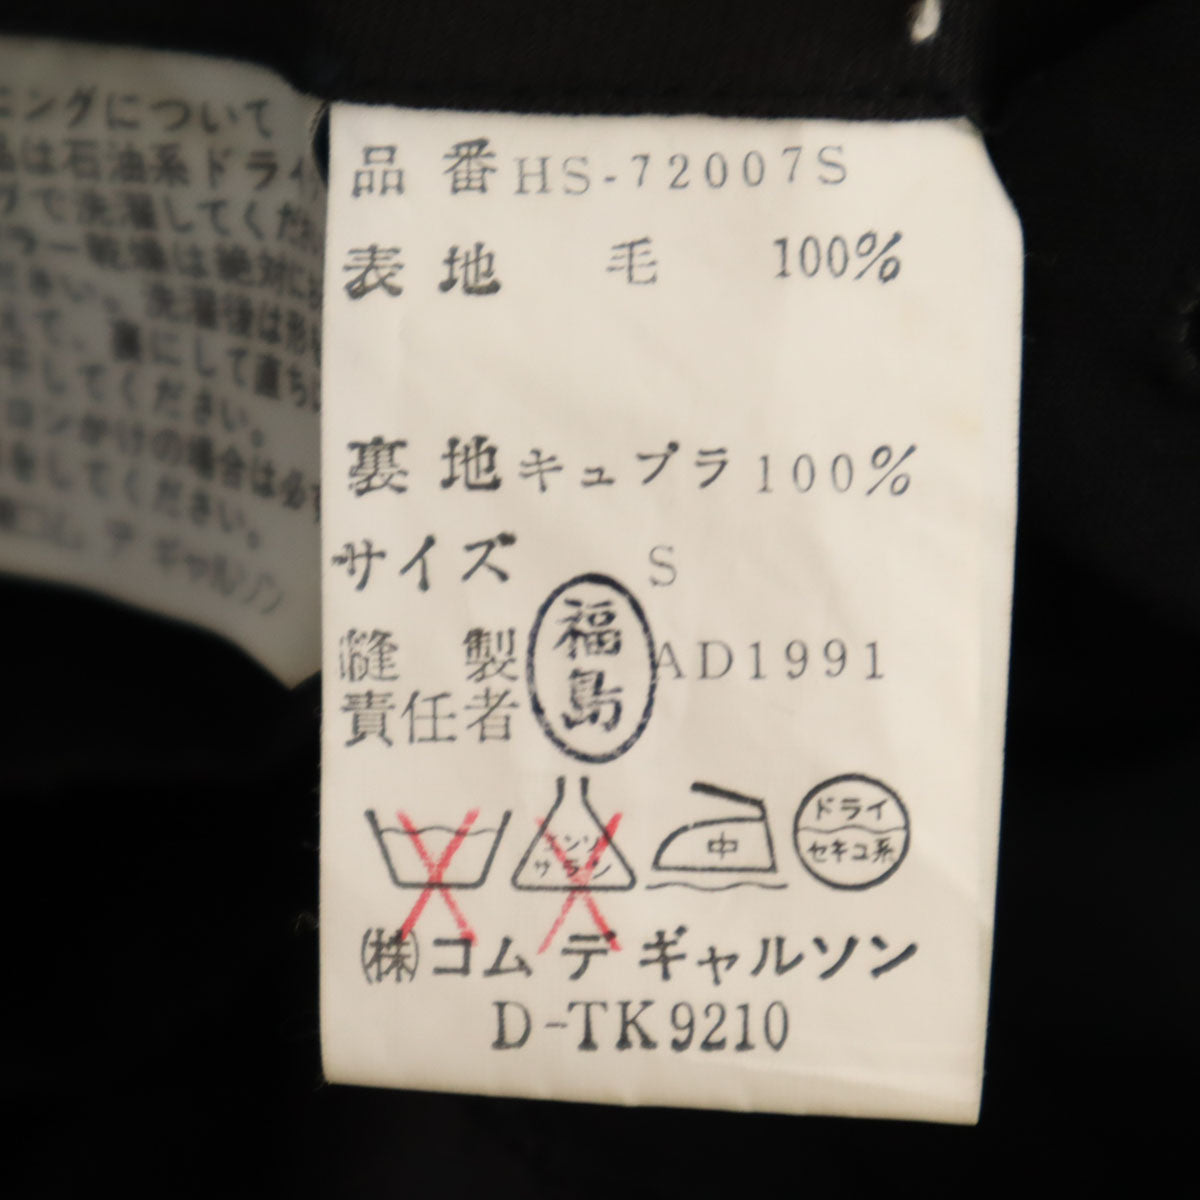 ニングについて
品は石油系ドライ
グで洗濯してくだ
ラー乾燥は絶対に
さい。洗濯後は形
えて、裏にして直ちに
干してください。
ロンかけの場合は必ず
をしてください。
コム デ ギャルソン
品番 HS-72007S
表地 毛 100%
裏地 キュプラ 100%
サイズ S
縫製 福島 AD1991
責任者
エンソ
サラシ
中
ドライ
セキユ系
㈱コム デ ギャルソン
D-TK9210